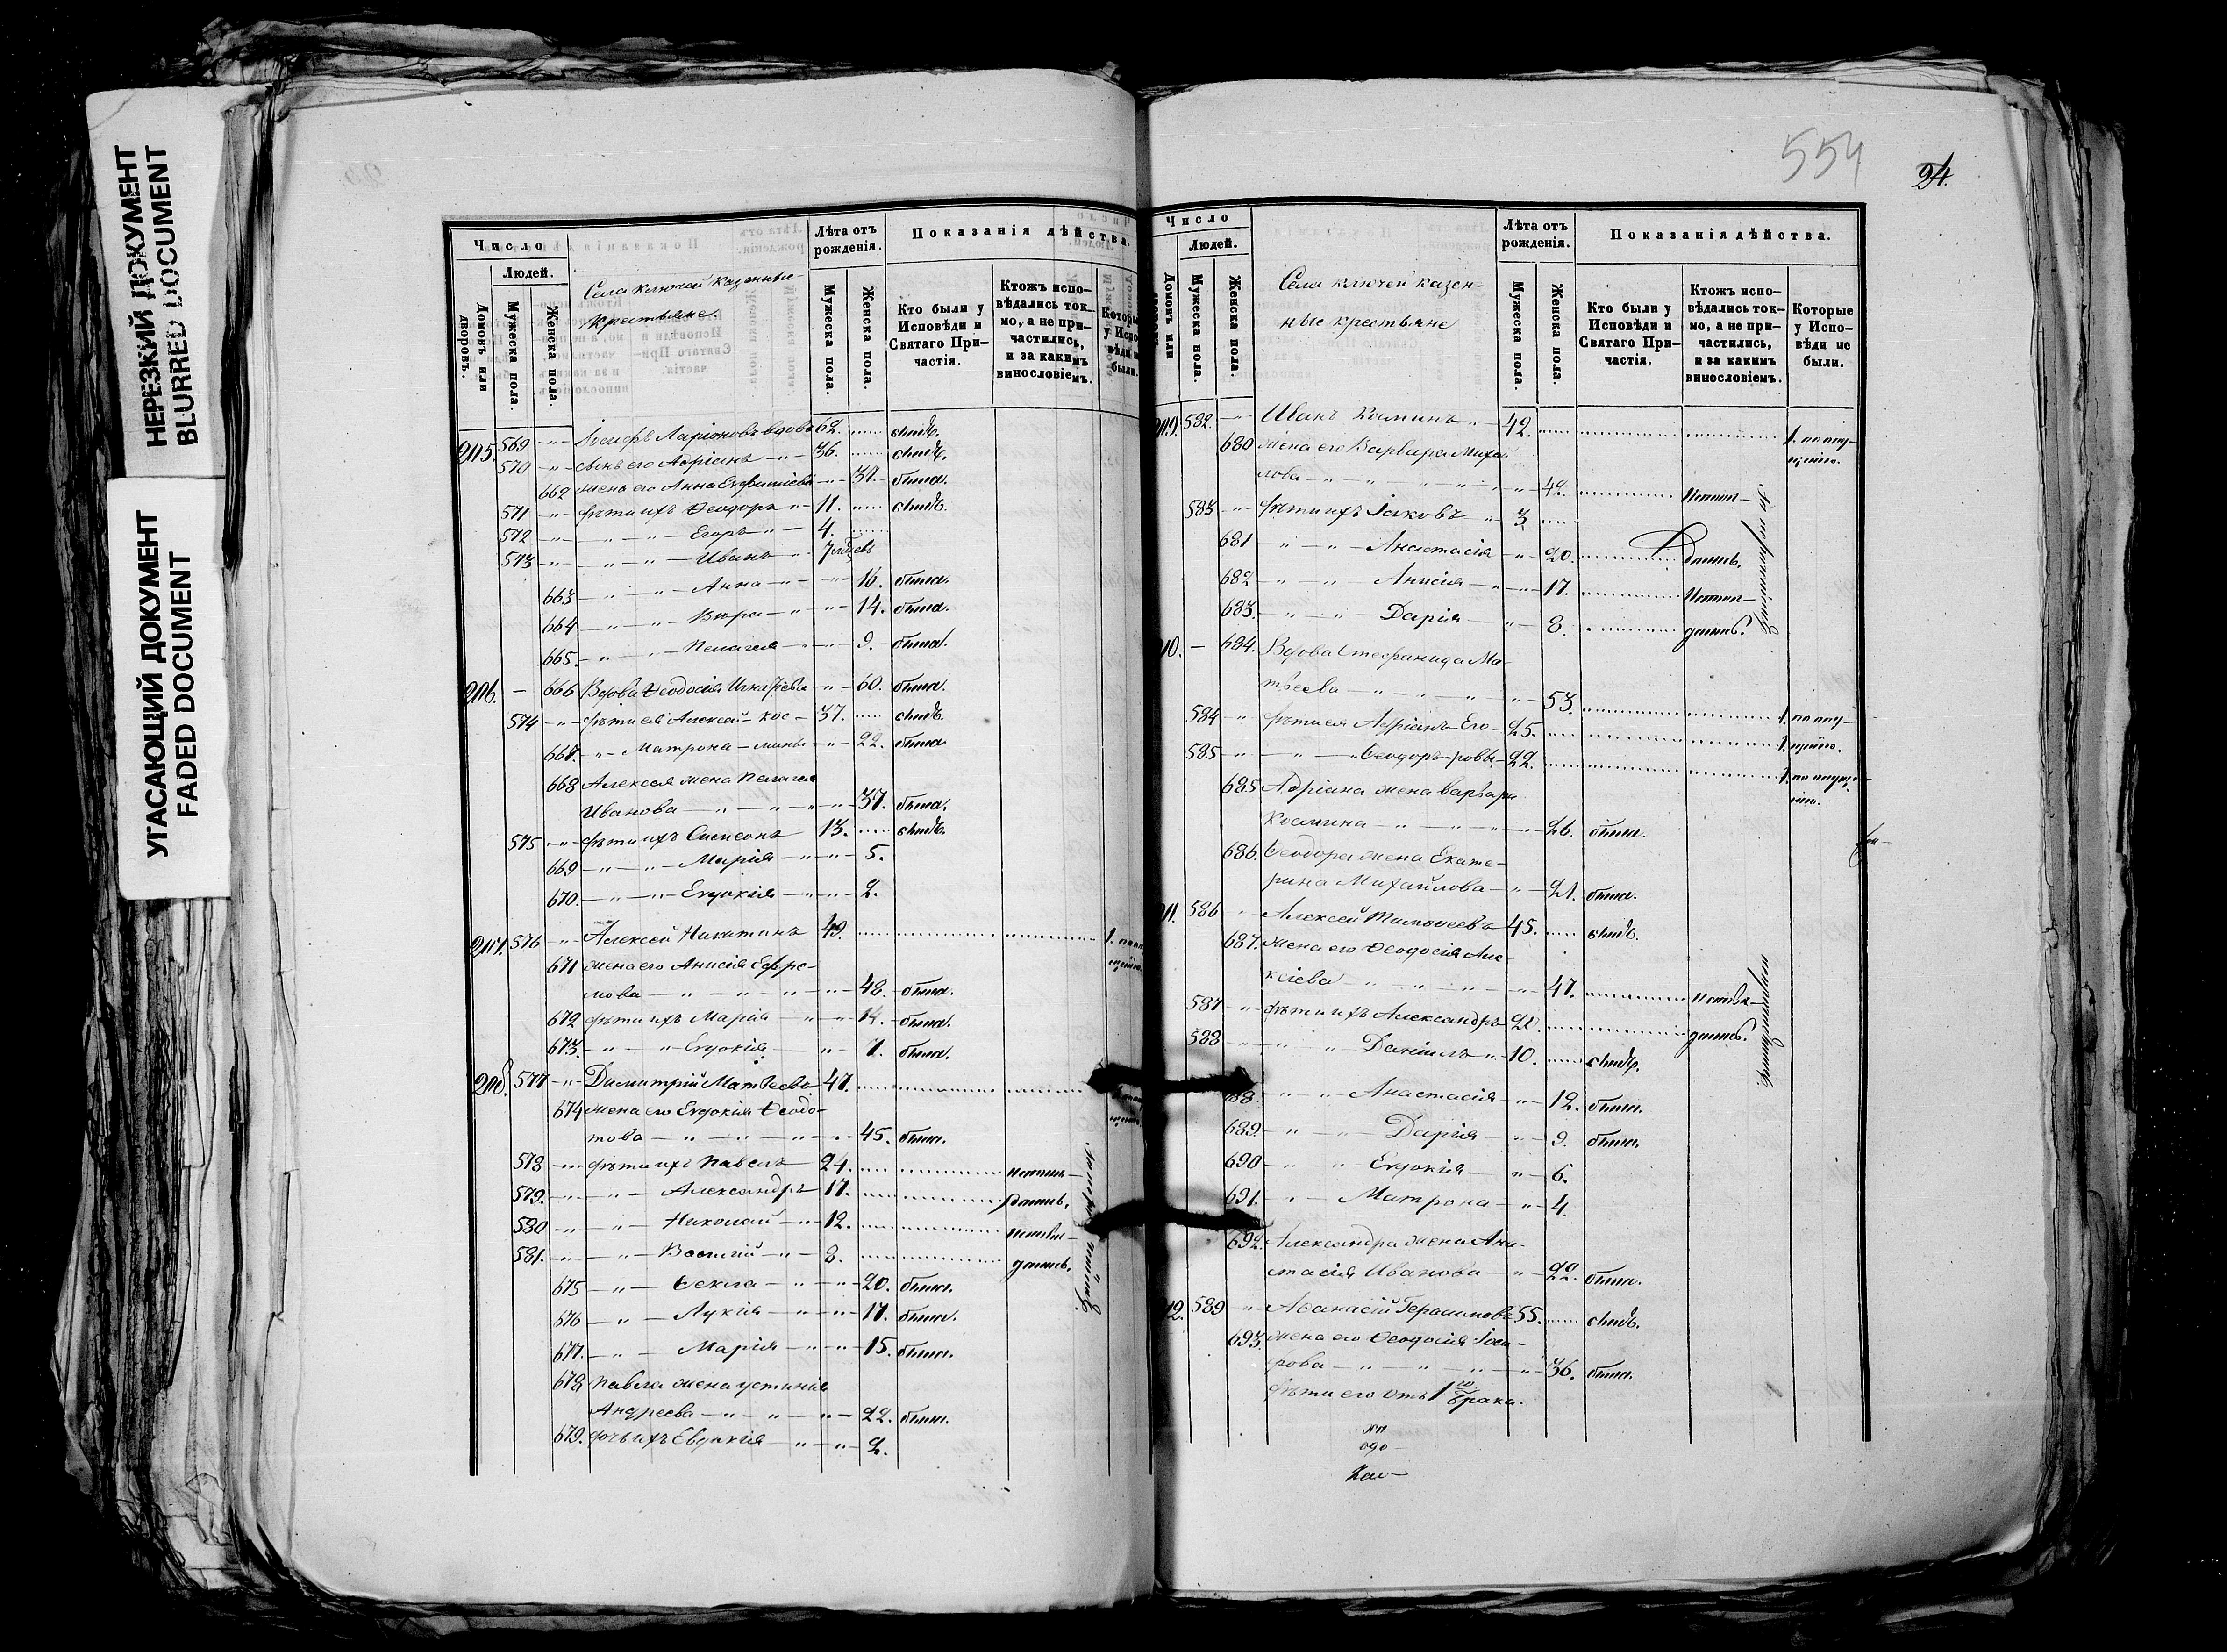 НЕРЕЗКИЙ ДОКУМЕНТ
BLURRED DOCUMENT
УГАСАЮЩИЙ ДОКУМЕНТ
FADED DOCUMENT
Число
Людей.
Домовъ или дворовъ.
Мужеска пола.
Женска пола.
Села Ключей казенные
крестьяне.
Лѣта отъ рожденія.
Мужеска пола.
Женска пола.
Показанія дѣйства.
Кто были у Исповѣди и Святаго Причастія.
Ктожъ исповѣдались токмо, а не причастились, и за какимъ винословіемъ.
Которые у Испо- вѣди не были.
205. 569 Іосифъ Ларіоновъ вдовъ 62. былъ.
570 сынъ его Адріанъ 36. былъ.
662 жена его Анна 37. была.
571 дѣти ихъ Ѳеодоръ 11. былъ.
572 Егоръ 4.
573 Иванъ 7
663 Анна 16. была.
664 Вѣра 14. была.
665. Пелагея 9. была.
206. 666 Вдова Ѳеодосія Игнатьева 60. была.
574 дѣти ея Алексей Кос- 37. былъ.
667. Матрона мины 22. была
668 Алексея жена Пелагея
Иванова 37. была.
575 дѣти ихъ Симеонъ 13. былъ.
669 Марія 5.
670. Евдокія 2.
207. 576 Алексей Никитинъ 49. 1. по опу-
671 жена его Анисія Ефре- щенію.
мова 48. была.
672 дѣти ихъ Марія 14. была.
673. Евдокія 7. была.
208. 577 Димитрій Матвѣевъ 47.
674 жена его Евдокія Ѳеодо-
това 45. была.
578 дѣти ихъ Павелъ 24. Испов-
579. Александръ 17. дались.
580 Николай 12. Исповѣ-
581. Василій 8. дались.
675 Ѳекла 20. была.
676 Лукія 17. была.
677. Марія 15. была.
678 Павла жена Устинія
Андреева 22. была.
679. дочь ихъ Евдокія 2.
554
24.
Число
Людей.
Домовъ или
Мужеска пола.
Женска пола.
Села Ключей казен-
ные крестьяне
Лѣта отъ рожденія.
Мужеска пола.
Женска пола.
Показанія дѣйства.
Кто были у Исповѣди и Святаго Причастія.
Ктожъ исповѣдались токмо, а не причастились, и за какимъ винословіемъ.
Которые у Исповѣди не были.
209. 582. Иванъ Коминъ 42. 1. по опу-
680 жена его Варвара Михай щенію.
лова 42. Испов-
583 дѣти ихъ Іаковъ 3
681 Анастасія 20. дались.
682 Анисія 17. Испов-
683. Дарія 8. дались.
210. 684. Вдова Стефанида Ма-
твеева 53. 1. по опу-
584 дѣти ея Адріанъ Его- 25. 1. щенію.
585 Ѳеодоръ ровы 22. 1. по опуще-
685 Адріана жена Варвара нію.
Космина 26. была.
686. Ѳеодора жена Екате-
рина Михайлова 21. была.
211. 586 Алексей Тимоѳеевъ 45. былъ.
687. жена его Ѳеодосія Але-
ксіева 47. Исповѣ-
587 дѣти ихъ Александръ 20. дались.
588 Даніилъ 10. былъ.
688. Анастасія 12. была.
689. Дарія 9. была.
690 Евдокія 6.
691. Матрона 4.
692. Александра жена Ана-
стасія Иванова 22. была.
212. 589 Аѳанасій Герасимовъ 55. былъ.
693. жена его Ѳеодосія
рова 36. была.
дѣти его отъ 1го брака.